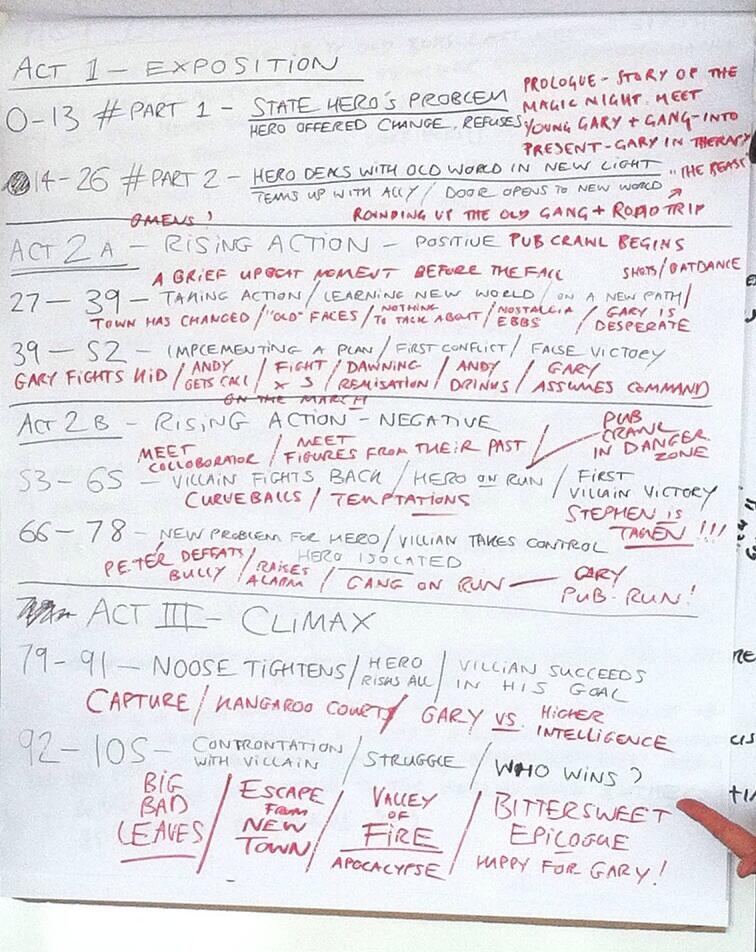 ACT 1 - EXPOSITION
0-13 # PART 1 - STATE HERO'S PROBLEM
HERO OFFERED CHANGE, REFUSES
PROLOGUE - STORY OF THE
MAGIC NIGHT. MEET
YOUNG GARY + GANG - INTO
PRESENT - GARY IN THERAPY
14-26 # PART 2 - HERO DEALS WITH OLD WORLD IN NEW LIGHT
TEAMS UP WITH ALLY / DOOR OPENS TO NEW WORLD
"THE REASON
OMENS?
ROUNDING UP THE OLD GANG + ROAD TRIP
ACT 2 A - RISING ACTION - POSITIVE PUB CRAWL BEGINS
A BRIEF UPBEAT MOMENT BEFORE THE FALL
SHOTS/OATDANCE
27 - 39 - TAKING ACTION / LEARNING NEW WORLD / ON A NEW PATH /
TOWN HAS CHANGED / "OLD" FACES / NOTHING TO TALK ABOUT / NOSTALGIA EBBS / GARY IS DESPERATE
39 - 52 - IMPLEMENTING A PLAN / FIRST CONFLICT / FALSE VICTORY
GARY FIGHTS KID / ANDY GETS CALL / FIGHT X 3 / DAWNING REALISATION / ANDY DRINKS / GARY ASSUMES COMMAND
ON THE MARCH
ACT 2 B - RISING ACTION - NEGATIVE
PUB
CRAWL
IN DANGER
ZONE
MEET COLLOBORATOR / MEET FIGURES FROM THEIR PAST /
53 - 65 - VILLAIN FIGHTS BACK / HERO ON RUN / FIRST VILLAIN VICTORY
CURVEBALLS / TEMPTATIONS
STEPHEN IS
TAKEN!!!
66 - 78 - NEW PROBLEM FOR HERO / VILLIAN TAKES CONTROL
HERO ISOLATED
PETER DEFEATS BULLY / RAISES ALARM / GANG ON RUN - GARY PUB-RUN!
ACT III - CLIMAX
79 - 91 - NOOSE TIGHTENS / HERO RISKS ALL / VILLIAN SUCCEEDS IN HIS GOAL
CAPTURE / KANGAROO COURT / GARY VS. HIGHER INTELLIGENCE
92 - 105 - CONFRONTATION WITH VILLAIN / STRUGGLE / WHO WINS?
BIG BAD LEAVES / ESCAPE FROM NEW TOWN / VALLEY OF FIRE APOCALYPSE / BITTERSWEET EPILOGUE HAPPY FOR GARY!